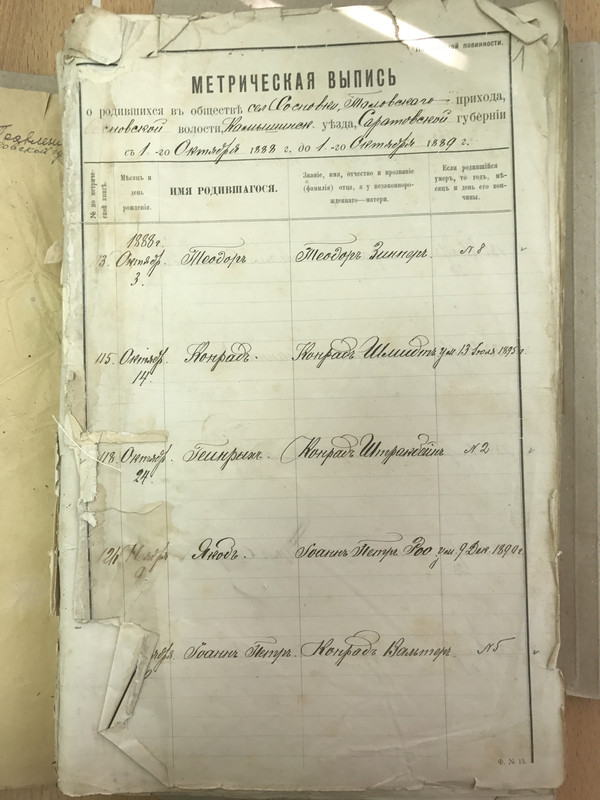 повинности.
1
МЕТРИЧЕСКАЯ ВЫПИСЬ
о родившихся въ обществѣ сел Сосновки, Таловскаго прихода,
сновской волости, Камышинск. уѣзда, Саратовской губерніи
съ 1-го Октября 1888 г. до 1-го Октября 1889 г.
№ по метрической книгѣ.
Мѣсяцъ и
день
рожденія.
ИМЯ РОДИВШАГОСЯ.
Званіе, имя, отчество и прозваніе
(фамилія) отца, а у незаконнорожденнаго—матери.
Если родившійся
умеръ, то годъ, мѣсяцъ и день его кончины.
1888 г
Октябр. Теодоръ Теодоръ Циннеръ. № 8
3.
115. Октябр. Конрадъ. Конрадъ Шмидтъ ум 13 Іюля 1895 г.
14.
118. Октябр. Генрихъ. Конрадъ Штрамбейнъ № 2
24.
Якобъ. Іоаннъ Петръ Роо ум 9 Дек. 1890 г.
Іоаннъ Петръ. Конрадъ Вальтеръ. № 5
Ф. № 13.